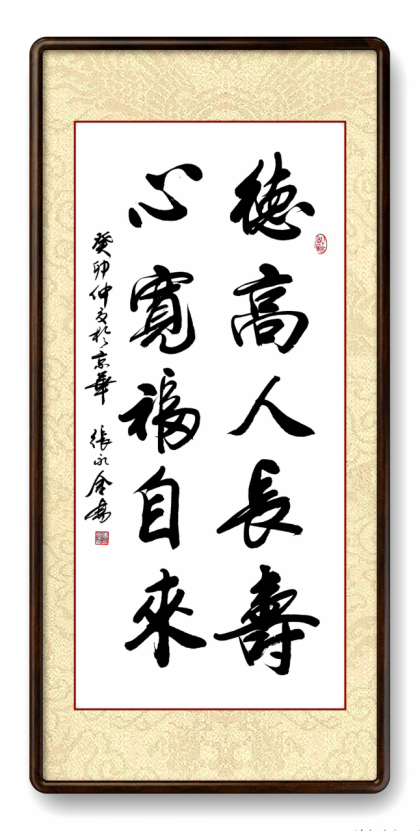 德高人長壽
心寬福自來
癸卯仲夏於京華 張永金書